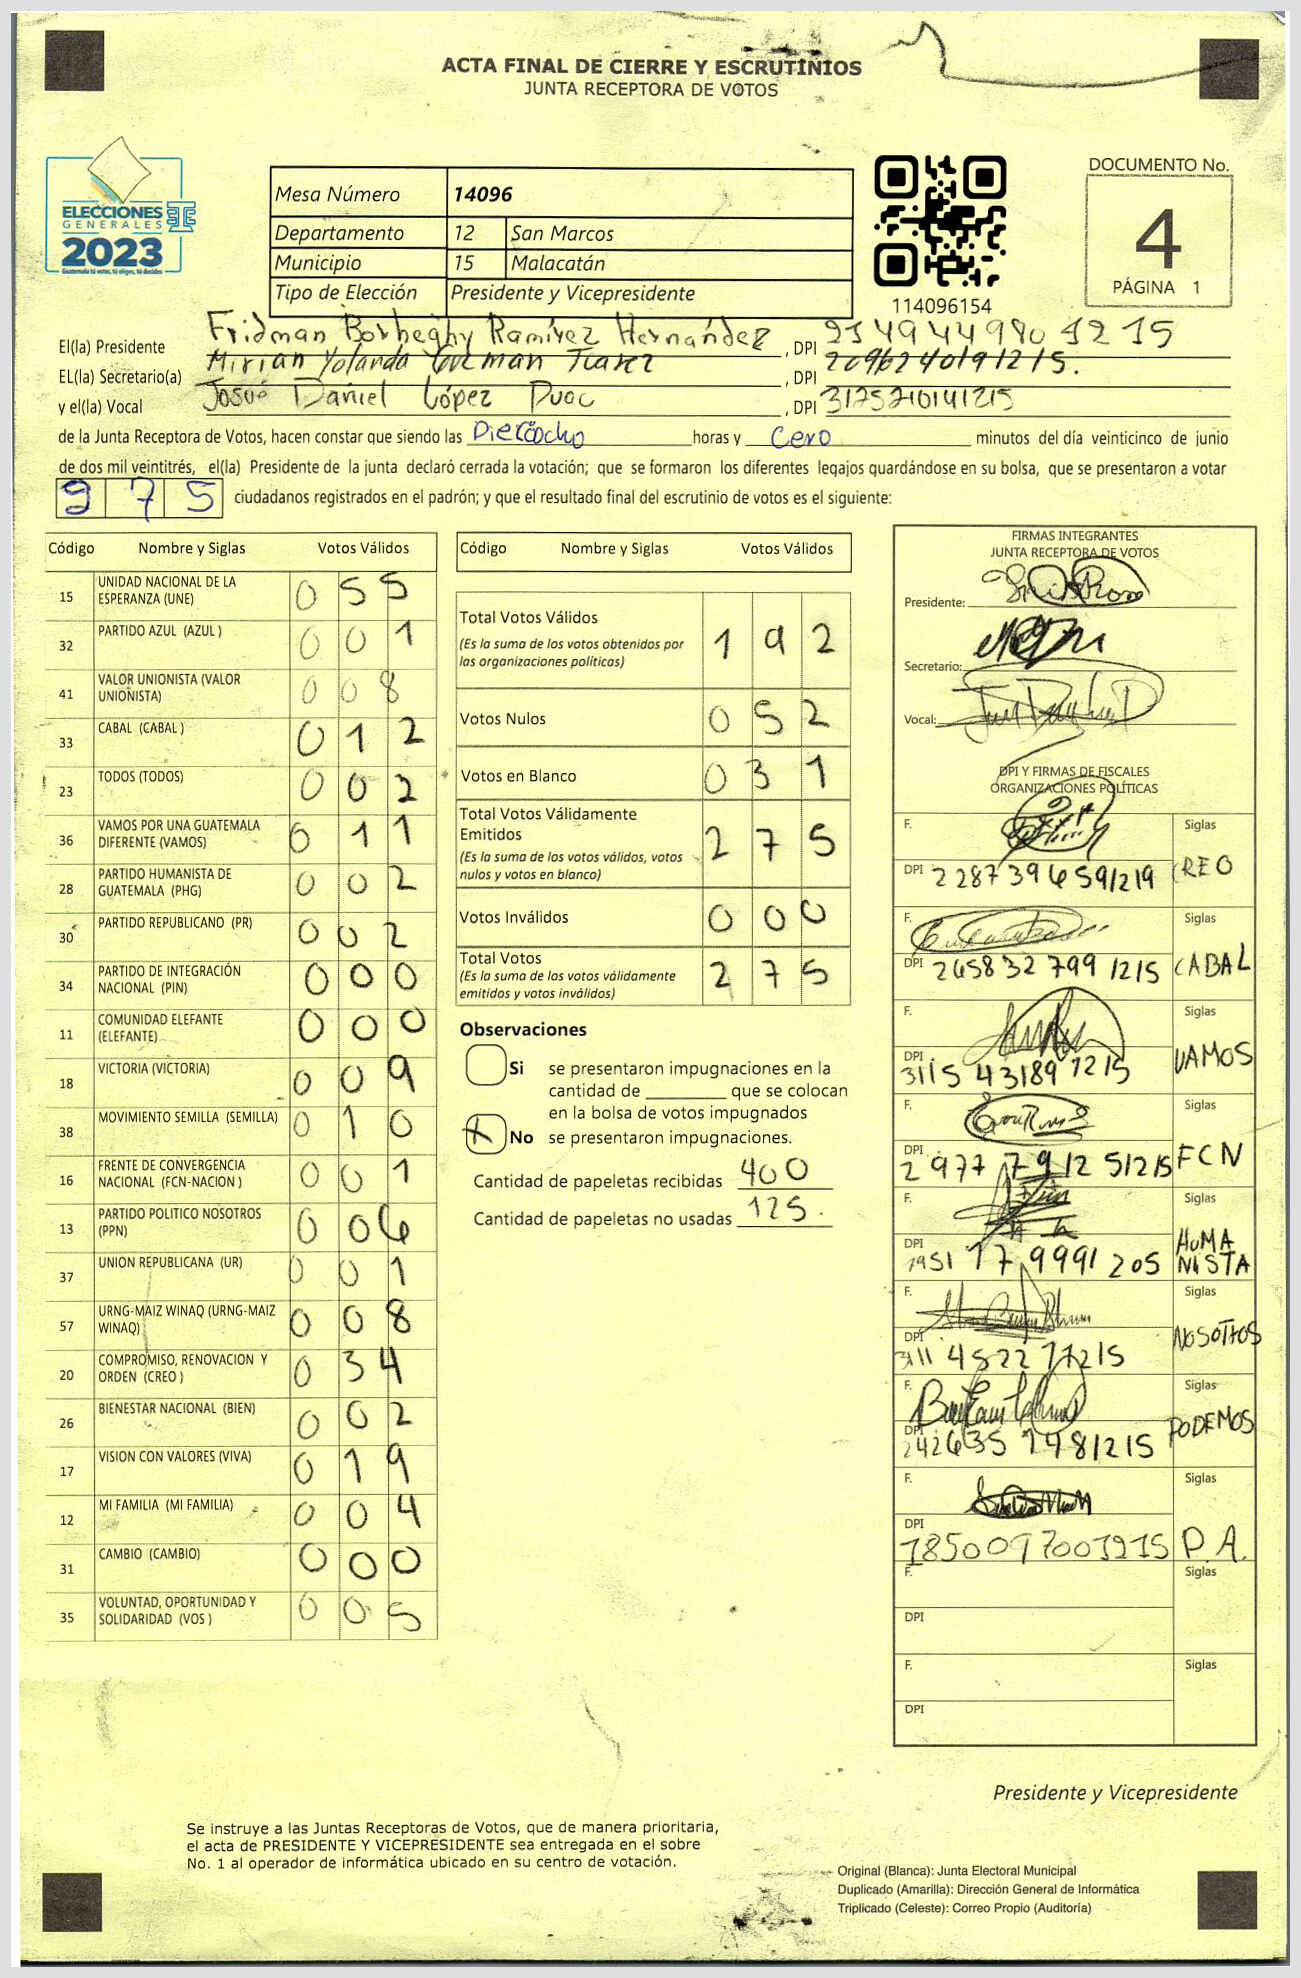 ACTA FINAL DE CIERRE Y ESCRUTINIOS
JUNTA RECEPTORA DE VOTOS
ELECCIONES
GENERALES
2023
Guatemala tú votas, tú eliges, tú decides
Mesa Número 14096
Departamento 12 San Marcos
Municipio 15 Malacatán
Tipo de Elección Presidente y Vicepresidente
114096154
DOCUMENTO No.
4
PÁGINA 1
El(la) Presidente Fridman Ramírez Hernández, DPI 2149449801215
EL(la) Secretario(a) Mirian Yolanda, DPI 2096240191215.
y el(la) Vocal Josué Daniel López, DPI 3175710141215
de la Junta Receptora de Votos, hacen constar que siendo las Dieciocho horas y Cero minutos del día veinticinco de junio
de dos mil veintitrés, el(la) Presidente de la junta declaró cerrada la votación; que se formaron los diferentes legajos guardándose en su bolsa, que se presentaron a votar
975 ciudadanos registrados en el padrón; y que el resultado final del escrutinio de votos es el siguiente:
Código Nombre y Siglas Votos Válidos
15 UNIDAD NACIONAL DE LA ESPERANZA (UNE) 055
32 PARTIDO AZUL (AZUL ) 001
41 VALOR UNIONISTA (VALOR UNIONISTA) 008
33 CABAL (CABAL ) 012
23 TODOS (TODOS) 002
36 VAMOS POR UNA GUATEMALA DIFERENTE (VAMOS) 011
28 PARTIDO HUMANISTA DE GUATEMALA (PHG) 002
30 PARTIDO REPUBLICANO (PR) 002
34 PARTIDO DE INTEGRACIÓN NACIONAL (PIN) 000
11 COMUNIDAD ELEFANTE (ELEFANTE) 000
18 VICTORIA (VICTORIA) 009
38 MOVIMIENTO SEMILLA (SEMILLA) 010
16 FRENTE DE CONVERGENCIA NACIONAL (FCN-NACION ) 001
13 PARTIDO POLITICO NOSOTROS (PPN) 006
37 UNION REPUBLICANA (UR) 001
57 URNG-MAIZ WINAQ (URNG-MAIZ WINAQ) 008
20 COMPROMISO, RENOVACION Y ORDEN (CREO ) 034
26 BIENESTAR NACIONAL (BIEN) 002
17 VISION CON VALORES (VIVA) 019
12 MI FAMILIA (MI FAMILIA) 004
31 CAMBIO (CAMBIO) 000
35 VOLUNTAD, OPORTUNIDAD Y SOLIDARIDAD (VOS ) 005
Código Nombre y Siglas Votos Válidos
Total Votos Válidos 192
(Es la suma de los votos obtenidos por
las organizaciones políticas)
Votos Nulos 052
Votos en Blanco 031
Total Votos Válidamente
Emitidos 275
(Es la suma de los votos válidos, votos
nulos y votos en blanco)
Votos Inválidos 000
Total Votos 275
(Es la suma de los votos válidamente
emitidos y votos inválidos)
Observaciones
Si se presentaron impugnaciones en la
cantidad de ________ que se colocan
en la bolsa de votos impugnados
X No se presentaron impugnaciones.
Cantidad de papeletas recibidas 400
Cantidad de papeletas no usadas 125.
FIRMAS INTEGRANTES
JUNTA RECEPTORA DE VOTOS
Presidente:
Secretario:
Vocal:
DPI Y FIRMAS DE FISCALES
ORGANIZACIONES POLÍTICAS
F. Siglas
DPI 2287394591219 CREO
F. Siglas
DPI 2458327991215 CABAL
F. Siglas
DPI 3115431891215 VAMOS
F. Siglas
DPI 2977791251215 FCN
F. Siglas
DPI 1951779991205 HUMANISTA
F. Siglas
DPI NOSOTROS
F. Siglas
DPI PODEMOS
F. Siglas
DPI 1850097001215 P.A.
F. Siglas
DPI
F. Siglas
DPI
Presidente y Vicepresidente
Se instruye a las Juntas Receptoras de Votos, que de manera prioritaria,
el acta de PRESIDENTE Y VICEPRESIDENTE sea entregada en el sobre
No. 1 al operador de informática ubicado en su centro de votación.
Original (Blanca): Junta Electoral Municipal
Duplicado (Amarilla): Dirección General de Informática
Triplicado (Celeste): Correo Propio (Auditoría)